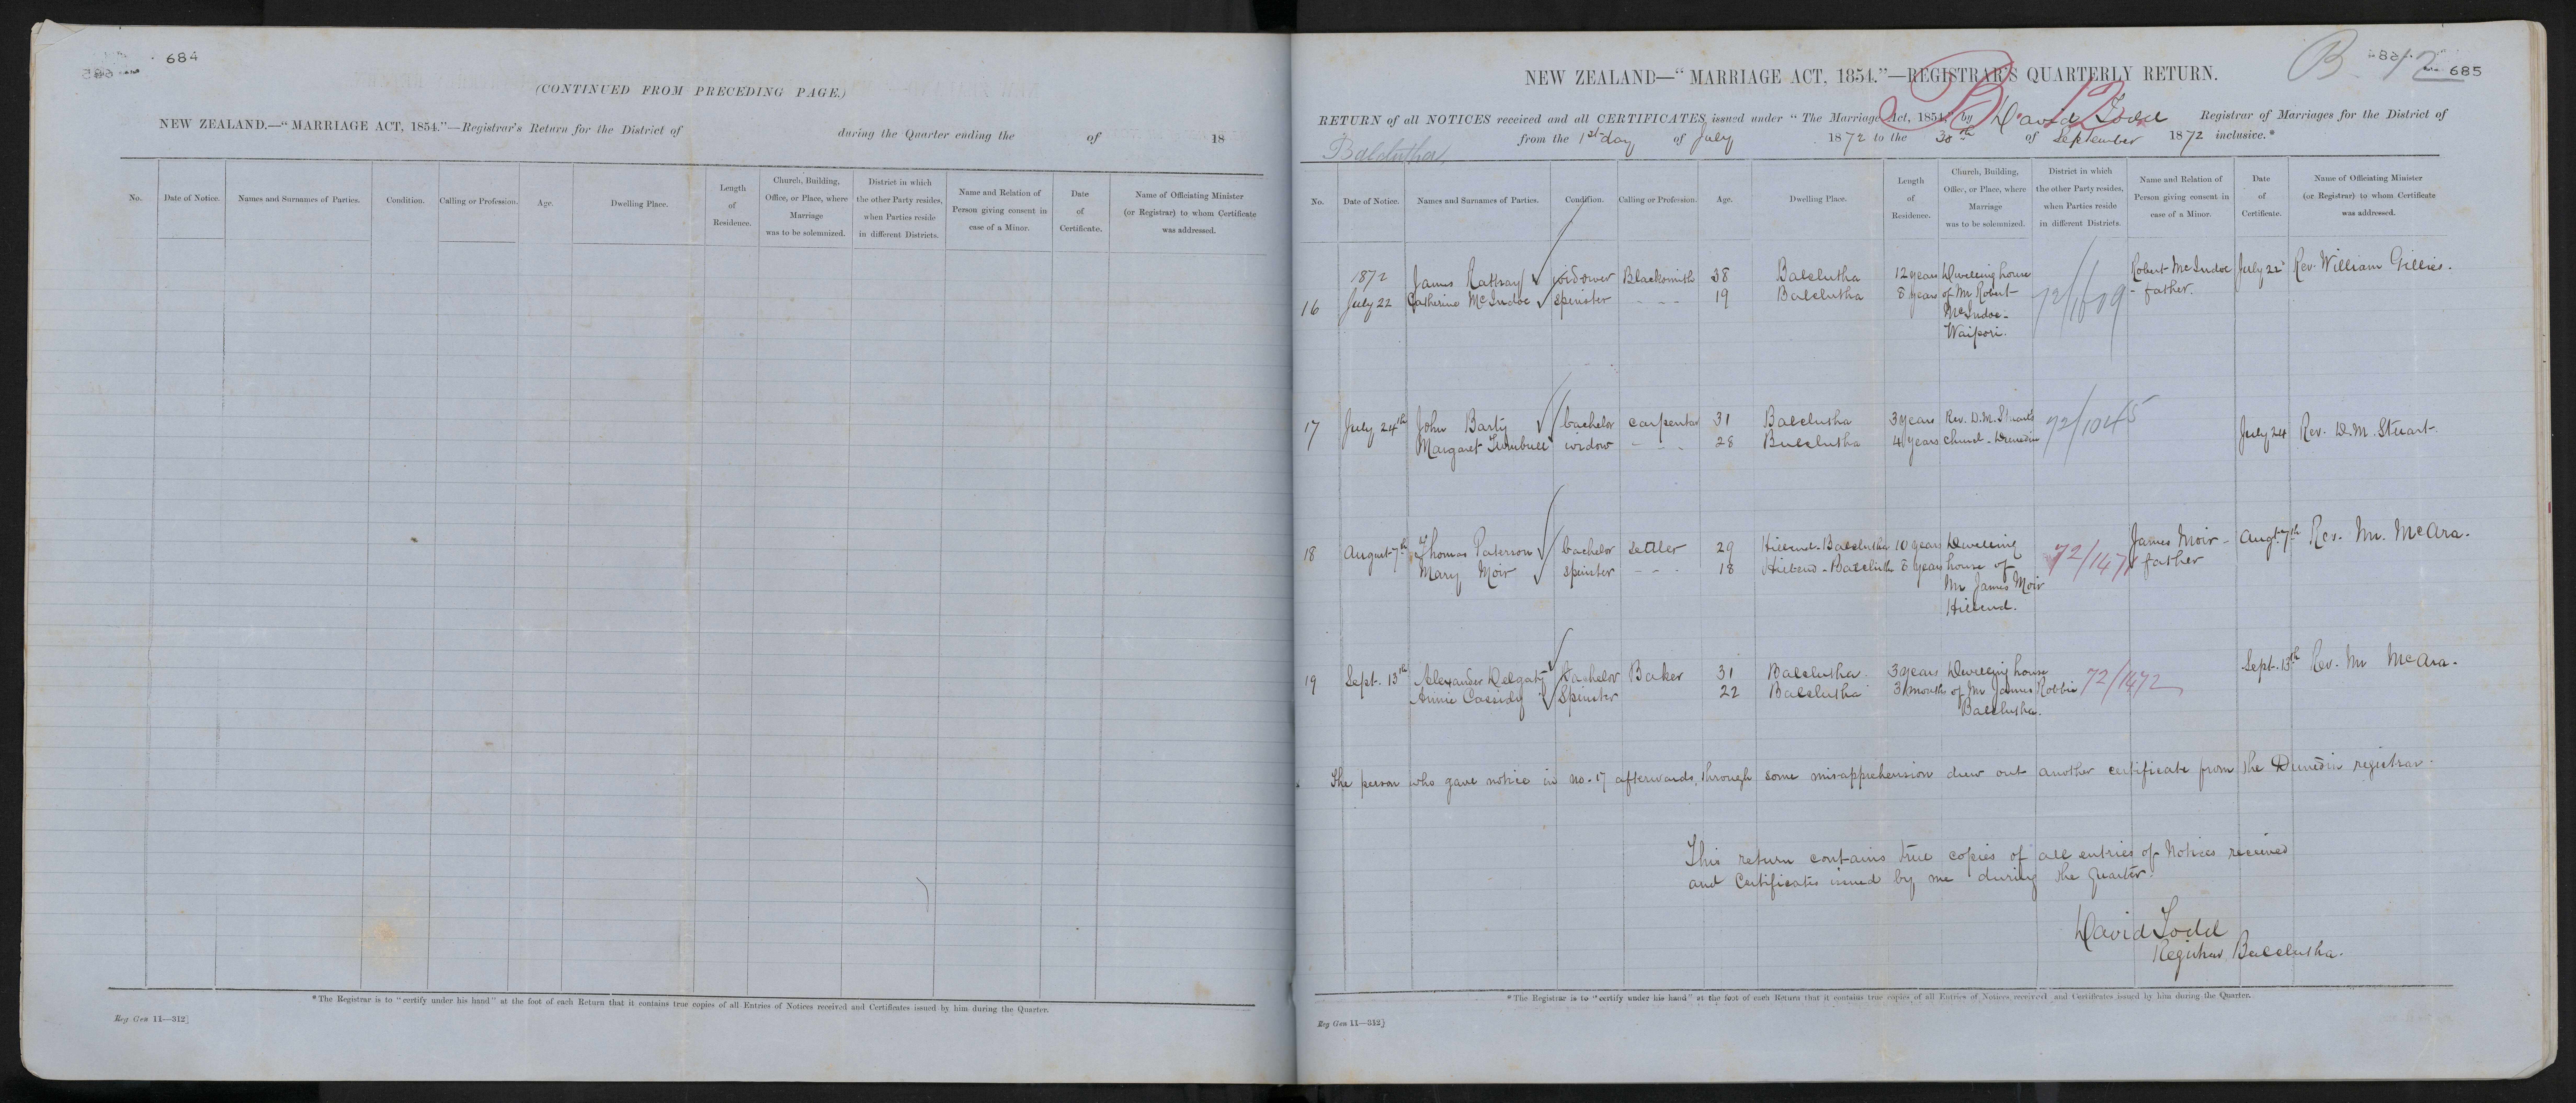 684
(CONTINUED FROM PRECEDING PAGE.)
NEW ZEALAND.—“MARRIAGE ACT, 1854.”—Registrar's Return for the District of during the Quarter ending the of 18
No. Date of Notice. Names and Surnames of Parties. Condition. Calling or Profession. Age. Dwelling Place. Length of Residence. Church, Building, Office, or Place, where Marriage was to be solemnized. District in which the other Party resides, when Parties reside in different Districts. Name and Relation of Person giving consent in case of a Minor. Date of Certificate. Name of Officiating Minister (or Registrar) to whom Certificate was addressed.
*The Registrar is to “certify under his hand” at the foot of each Return that it contains true copies of all Entries of Notices received and Certificates issued by him during the Quarter.
Reg Gen 11—312]
B. 12
685
NEW ZEALAND—“MARRIAGE ACT, 1854.”—REGISTRAR'S QUARTERLY RETURN.
B 12
RETURN of all NOTICES received and all CERTIFICATES issued under “The Marriage Act, 1854,” by David Todd Registrar of Marriages for the District of
Balclutha from the 1st day of July 1872 to the 30th of September 1872 inclusive.*
No. Date of Notice. Names and Surnames of Parties. Condition. Calling or Profession. Age. Dwelling Place. Length of Residence. Church, Building, Office, or Place, where Marriage was to be solemnized. District in which the other Party resides, when Parties reside in different Districts. Name and Relation of Person giving consent in case of a Minor. Date of Certificate. Name of Officiating Minister (or Registrar) to whom Certificate was addressed.
1872 James Rattray widower Blacksmith 38 Balclutha 12 years Dwelling house Robert McIndoe July 22 Rev. William Gillies.
16 July 22 Catherine McIndoe spinster - - - 19 Balclutha 8 years of Mr Robert 72/1609 - father.
McIndoe -
Waipori.
17 July 24th John Barty bachelor carpenter 31 Balclutha 3 years Rev. D.M. Stuart's 72/1045 July 24 Rev. D.M. Stuart
Margaret Turnbull widow - - - 28 Balclutha 4 years church - Dunedin
18 August 7th Thomas Paterson bachelor settler 29 Hillend - Balclutha 10 years Dwelling James Moir - Augt. 7th Rev. Mr. McAra.
Mary Moir spinster - - - 18 Hillend - Balclutha 8 years house of 72/1471 father
Mr James Moir
Hillend.
19 Sept. 13th Alexander Delgaty Bachelor Baker 31 Balclutha. 3 years Dwelling house Sept. 13th Rev. Mr McAra.
Annie Cassidy Spinster 22 Balclutha 3 months of Mr James Robbie 72/1472
Balclutha.
The person who gave notice in no. 17 afterwards, through some misapprehension drew out another certificate from the Dunedin registrar.
This return contains true copies of all entries of Notices received
and Certificates issued by me during the quarter.
David Todd
Registrar Balclutha.
*The Registrar is to “certify under his hand” at the foot of each Return that it contains true copies of all Entries of Notices received and Certificates issued by him during the Quarter.
Reg Gen 11—312]